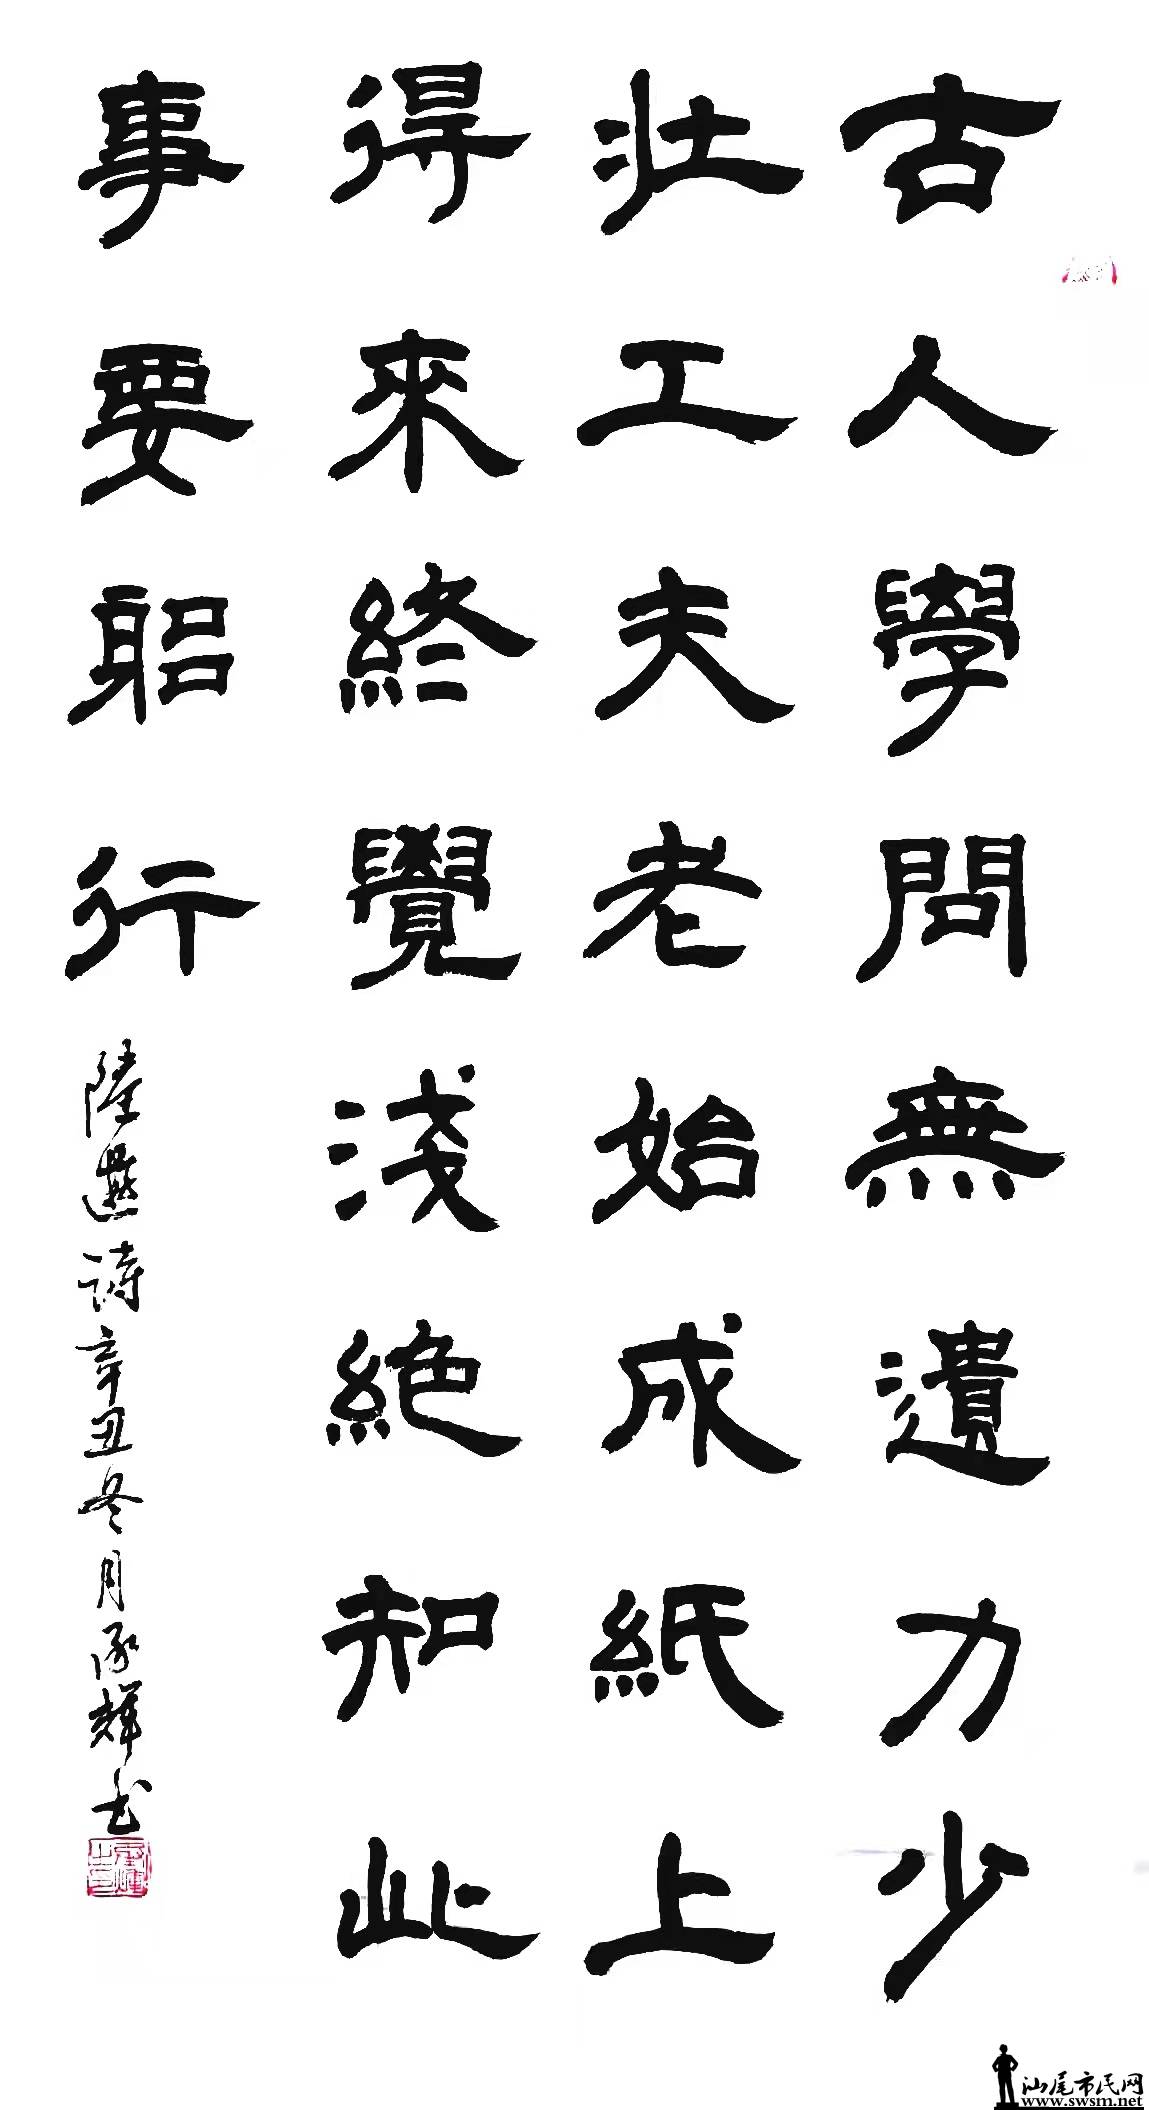 古人學問無遺力少
壯工夫老始成紙上
得來終覺淺絶知此
事要躳行
陸遊詩辛丑冬月承輝書
汕尾市民网
www.swsm.net